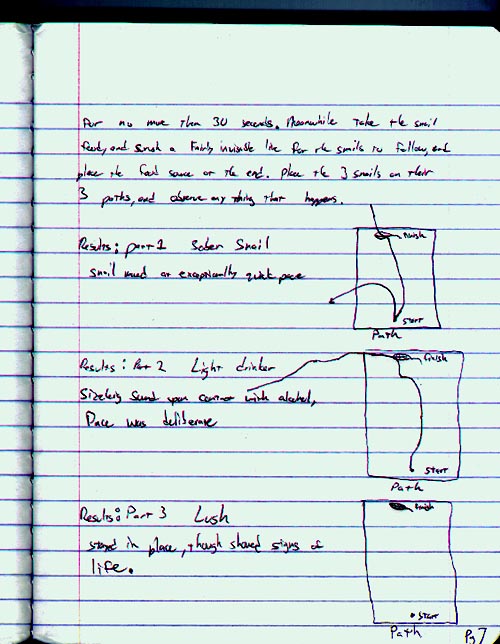 For no more than 30 seconds. Meanwhile take the snail
food, and smush a fairly invisible line for the snails to follow, and
place the food source at the end. Place the 3 snails on their
3 paths, and observe any thing that happens.
Results: part 1 Sober Snail
snail moved at exceptionally quick pace
finish
START
Path
Results: Part 2 Light drinker
Sizeling sound upon contact with alcohol,
Pace was deliberate
finish
START
Path
Results: Part 3 Lush
stayed in place, though showed signs of
life.
finish
START
Path
Pg 7